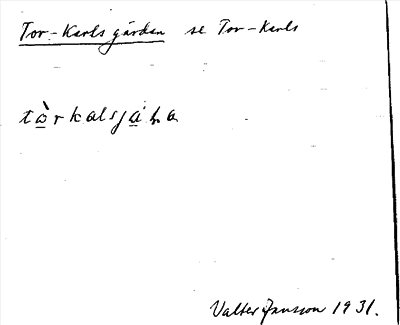 Tor-Karlsgårdan se Tor-Karls
tò̱rkalsja̱ʹɳa
Valter Jansson 1931.